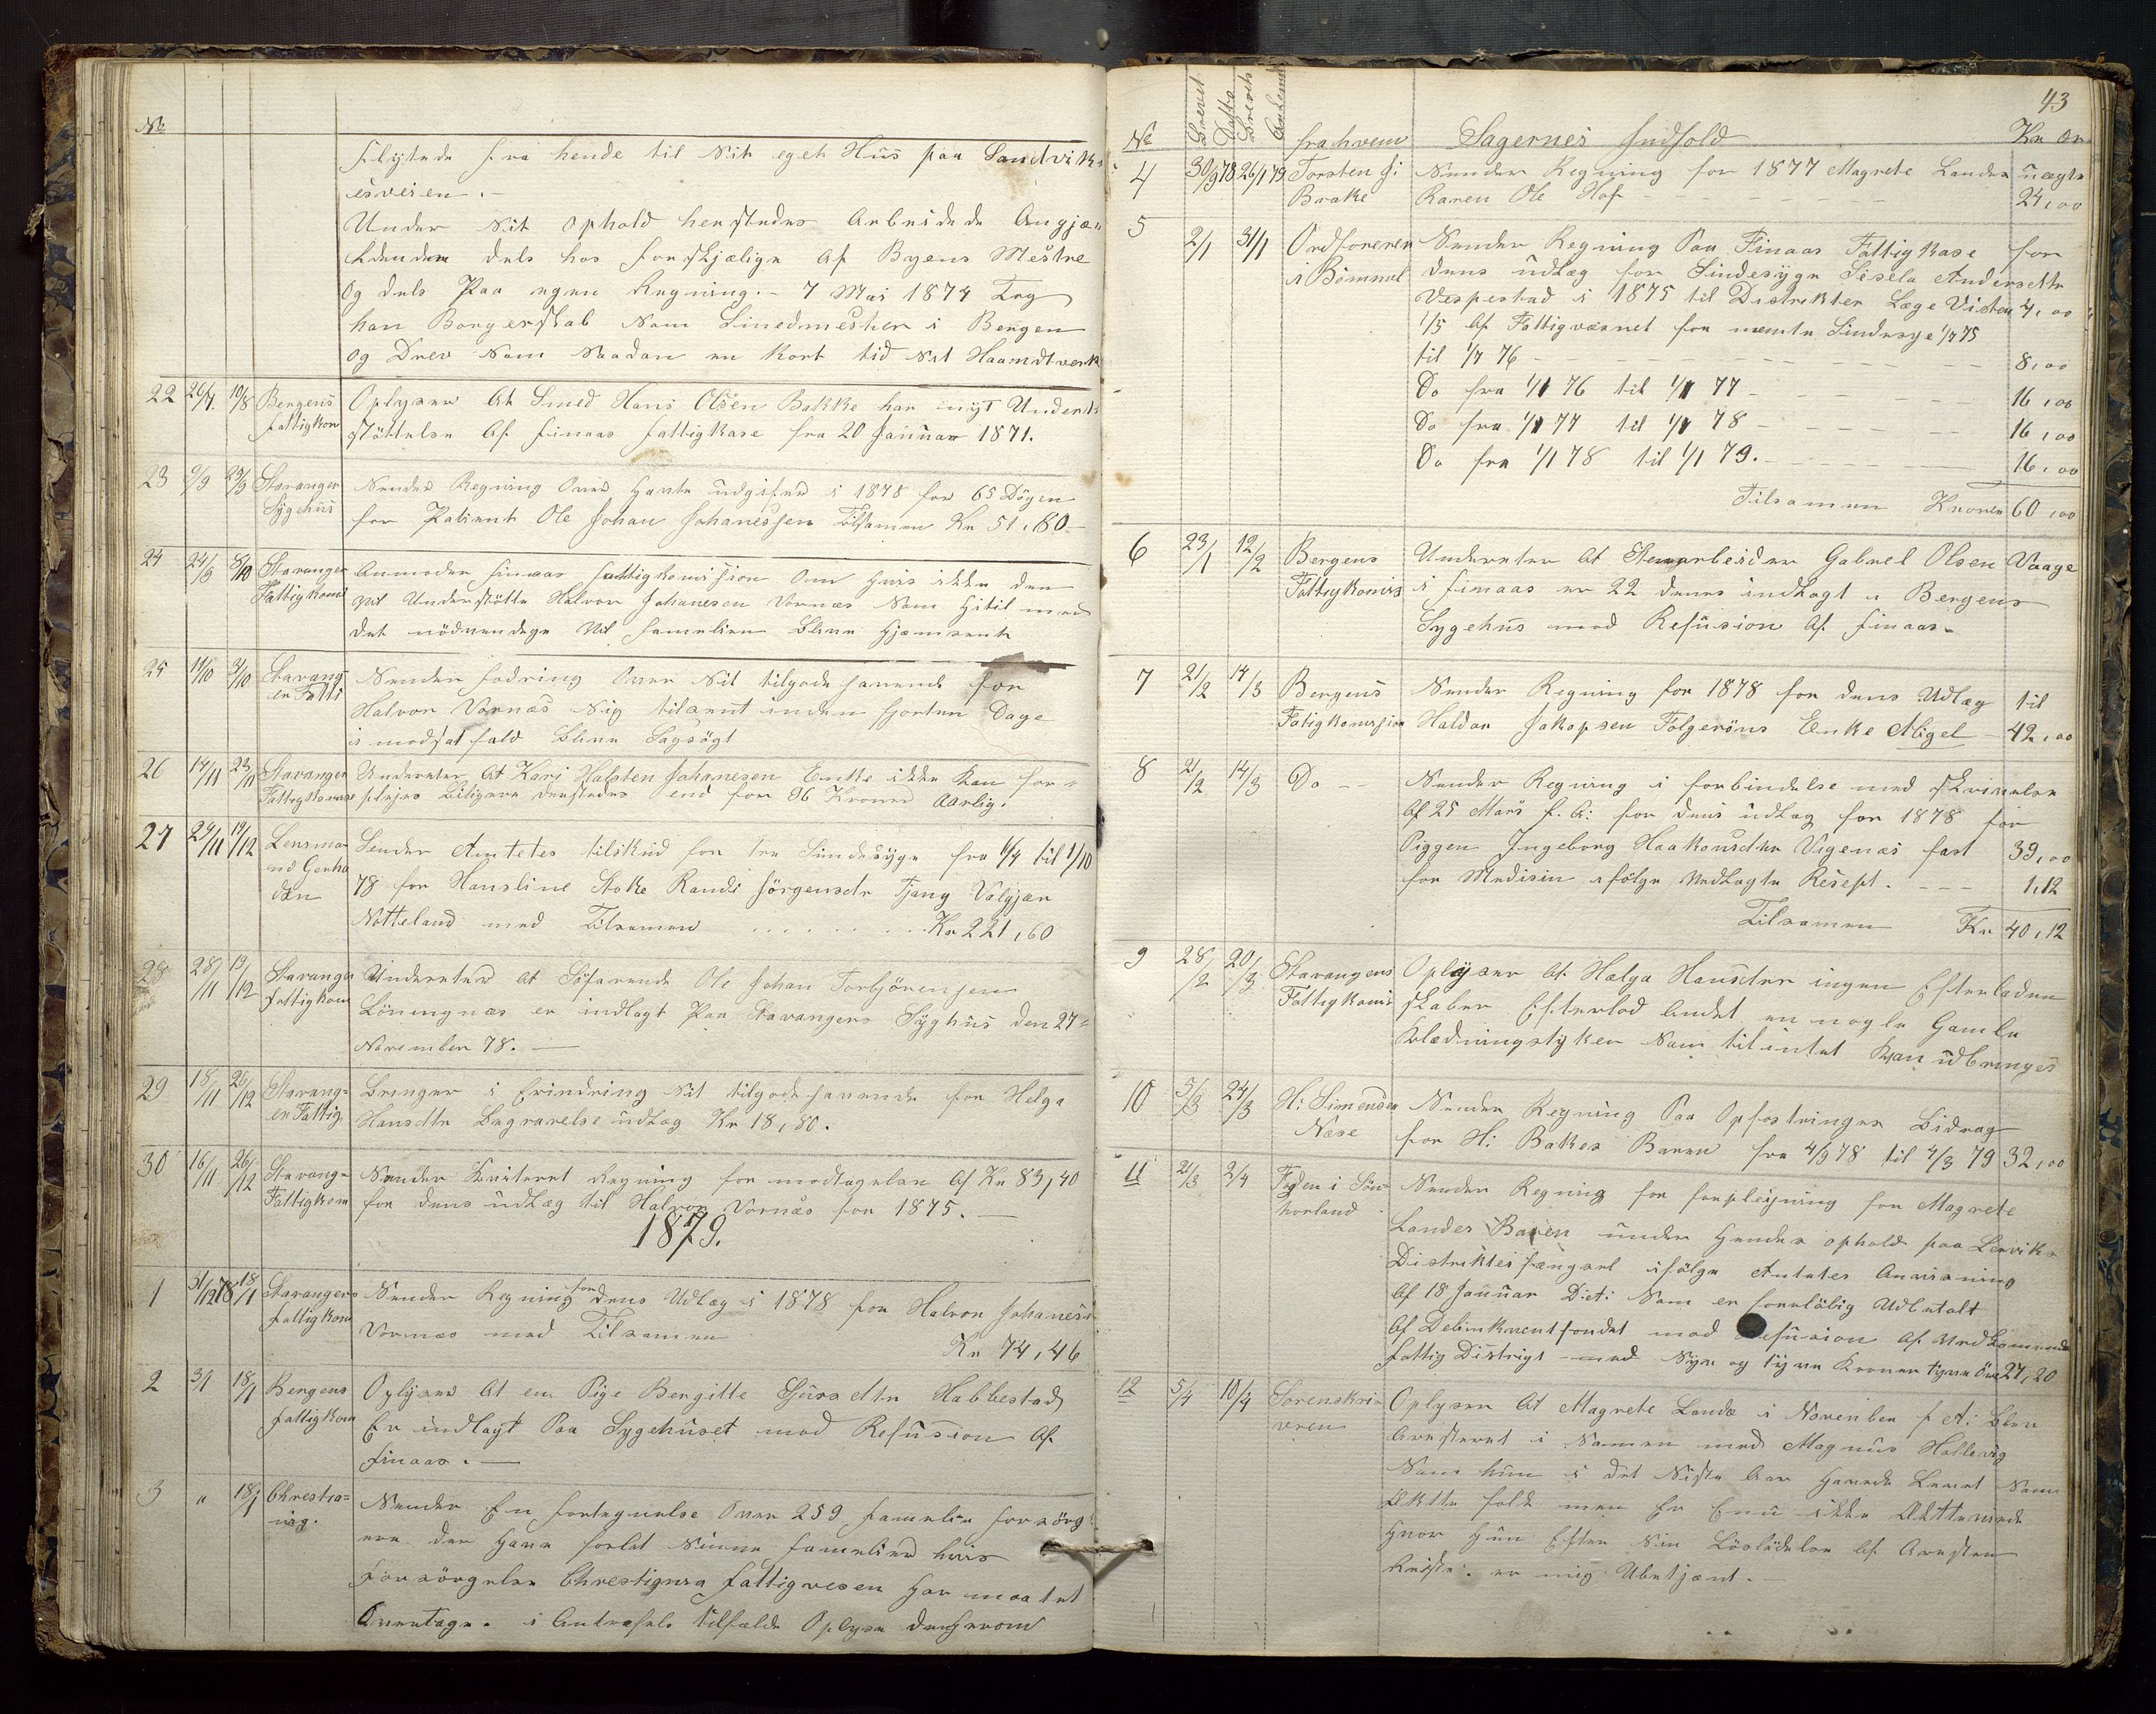 No
flytede fra hende til sit eget Hus paa Sandviks
esveien. -
Under sit Ophold herstedes Arbeidede Angjæ-
ldenden dels hos forskjælige Af Byens Mestre
Og dels Paa egen Regning. - 7 Mai 1874 Tog
han Borgerskab som Smedmester i Bergen
Og Drev som saadan en kort tid sit Haandtverk
22 26/7. 10/8 Bergens fattigkom Oplyser At Smed Hans Olsen Bakke har nyt Underst-
støttelse Af finaas fattigkase fra 20 Januar 1871.
23 9/9 25/9 Stavanger Sygehus Sender Regning Over Havte udgifter i 1878 for 65 Døgen
for Patient Ole Johan Johanessen Tilsamen Kr 51,80 -
24 24/9 8/10 Stavanger Fattigkomi Anmoder finaas fattigkomission Om hvis ikke den
vil Understøtte Halvor Johanesen Vornæs som hitil med
det nødvendige vil familien Blive hjæmsendt
25 14/10 3/10 Stavanger Fatti Sender fodring Over sit tilgodehavende for
Halvor Vornæs sig tilsent inden fjorten Dage
i modsat fald Blive Sagsøgt
26 14/11 23/11 Stavanger Fattigkomise Underreter At Kari Halsten Johanesen Enke ikke kan for-
plejes Biligere derstedes end for 96 Kroner Aarlig.
27 24/11 14/12 Lensmand Gerhadsen Sender Amtetes tilskud for tre Sindesyge fra 1/7 til 1/10
78 for Hansline Stoke Randi Jørgensdtr Tjang Valgjær
Notteland med Tilsamen . . . . . . . . Kr 221,60
28 28/11 13/12 Stavanger fattigkom Underreter at Søfarende Ole Johan Torbjørensen
Løningnæs er indlagt Paa Stavangers Syghus den 27-
November 78. —
29 18/11 26/12 Stavanger Fattig. Bringer i Erindring sit tilgodehavende for Helga
Hansdtr Begravelse udlæg Kr 18,80.
30 16/11 26/12 Stavang- Fattigkom Sender Kviteret Regning for modtagelse Af Kr 83,40
for dens udlæg til Halvor Vornæs for 1875. —
1879.
1 31/12 78 18/1 Stavangers fattigkom Sender Regning for dens Udlæg i 1878 for Halvor Johanes
Vornæs med Tilsamen
Kr 74,46
2 3/1 18/1 Bergens fattigkom Oplyser At en Pige Bergitte Sjursdtr Habbestad
Er indlagt Paa Sygehuset mod Refusion Af
finaas. —
3 " 18/1 Chrestia= nia. Sender En fortegnelse Over 259 familie forsørg
ere der have forlat Sinne familier hvis
forsørgelse Chrestiania fattigvesen har maatet
Overtage. i Antrefels tilfælde Oplyse derherom
43
No Brevet Datto Brevets Ankomst fra hvem Sagernes Indhold Kr Ør
4 30/9 78 26/1 79 Torsten Brake Sender Regning for 1877 Magrete Landes uægte
Baren Ole Hof - - - - - - 24,00
5 2/1 31/1 Ordføreren i Bømmel Sender Regning Paa Finaas Fattigkase for
dens udlæg for Sindesyge Sesela Andersdtr
Vespestad i 1875 til Distrikter Læge Visten 4,00
1/5 Af Fattigvæsnet for nævnte Sindesyge 1/7 75
til 1/7 76 - - - - - - 8,00
Do fra 1/1 76 til 1/1 77 - - - - - 16,00
Do fra 1/1 77 til 1/1 78 - - - - - 16,00
Do fra 1/1 78 til 1/1 79. - - - - - 16,00
Tilsamen Kroner 60,00
6 23/1 12/2 Bergens Fattigkomis Underreter at Stenarbeider Gabriel Olsen Vaage
i finaas er 22 denes indlagt i Bergens
Sygehus mod Refusion Af finaas.
7 21/2 14/3 Bergens Fatigkomission Sender Regning for 1878 for dens Udlæg til
Haldor Jakopsen Folgerøns Enke Migel - 42,00
8 21/2 14/3 Do - - Sender Regning i forbindelse med skrivelse
Af 25 Mars f. A: for dens udlæg for 1878 for
Piggen Ingeborg Haakonsdtr Vigenæs fast 39,00
for Medisin ifølge Vedlagte Resept. - - - 1,12
Tilsamen Kr 40,12
9 28/2 20/3 Stavangers Fattigkomis Oplyser At Helga Hansdter ingen Efterladen
skaber Efterlod Andet en nogle Gamle
Klædningstyker som til intet kan udbringes
10 5/3 24/3 H: Simensen Næse Sender Regning Paa Opfostringes Bidrag
for H: Bakes Baren fra 4/9 78 til 4/3 79 32,00
11 21/3 2/4 Fogden i Sønhorland Sender Regning for forpleigning for Magrete
Landes Baren under hendes ophold paa Lerviks
Distrikteifængsel ifølge Amtetes Anvisning
Af 18 Januar D:A: som er foreløbig Udbetalt
Af Delinkventfondet mod Refusion Af Vedkomende
fattig Distrigt - med Syv og tyve Kroner tyve Øre 27,20
12 5/4 10/4 Sorenskriveren Oplyser At Magrete Lande i November f A: blev
Aresteret i Samen med Magnus Hallevig
som hun i det Siste Aar havde Levet som
Ækte folk men Er Enu ikke Aktenviede
hvor hun Efter Sin Løsladelse Af Aresten
er mig Ubekjænt. -